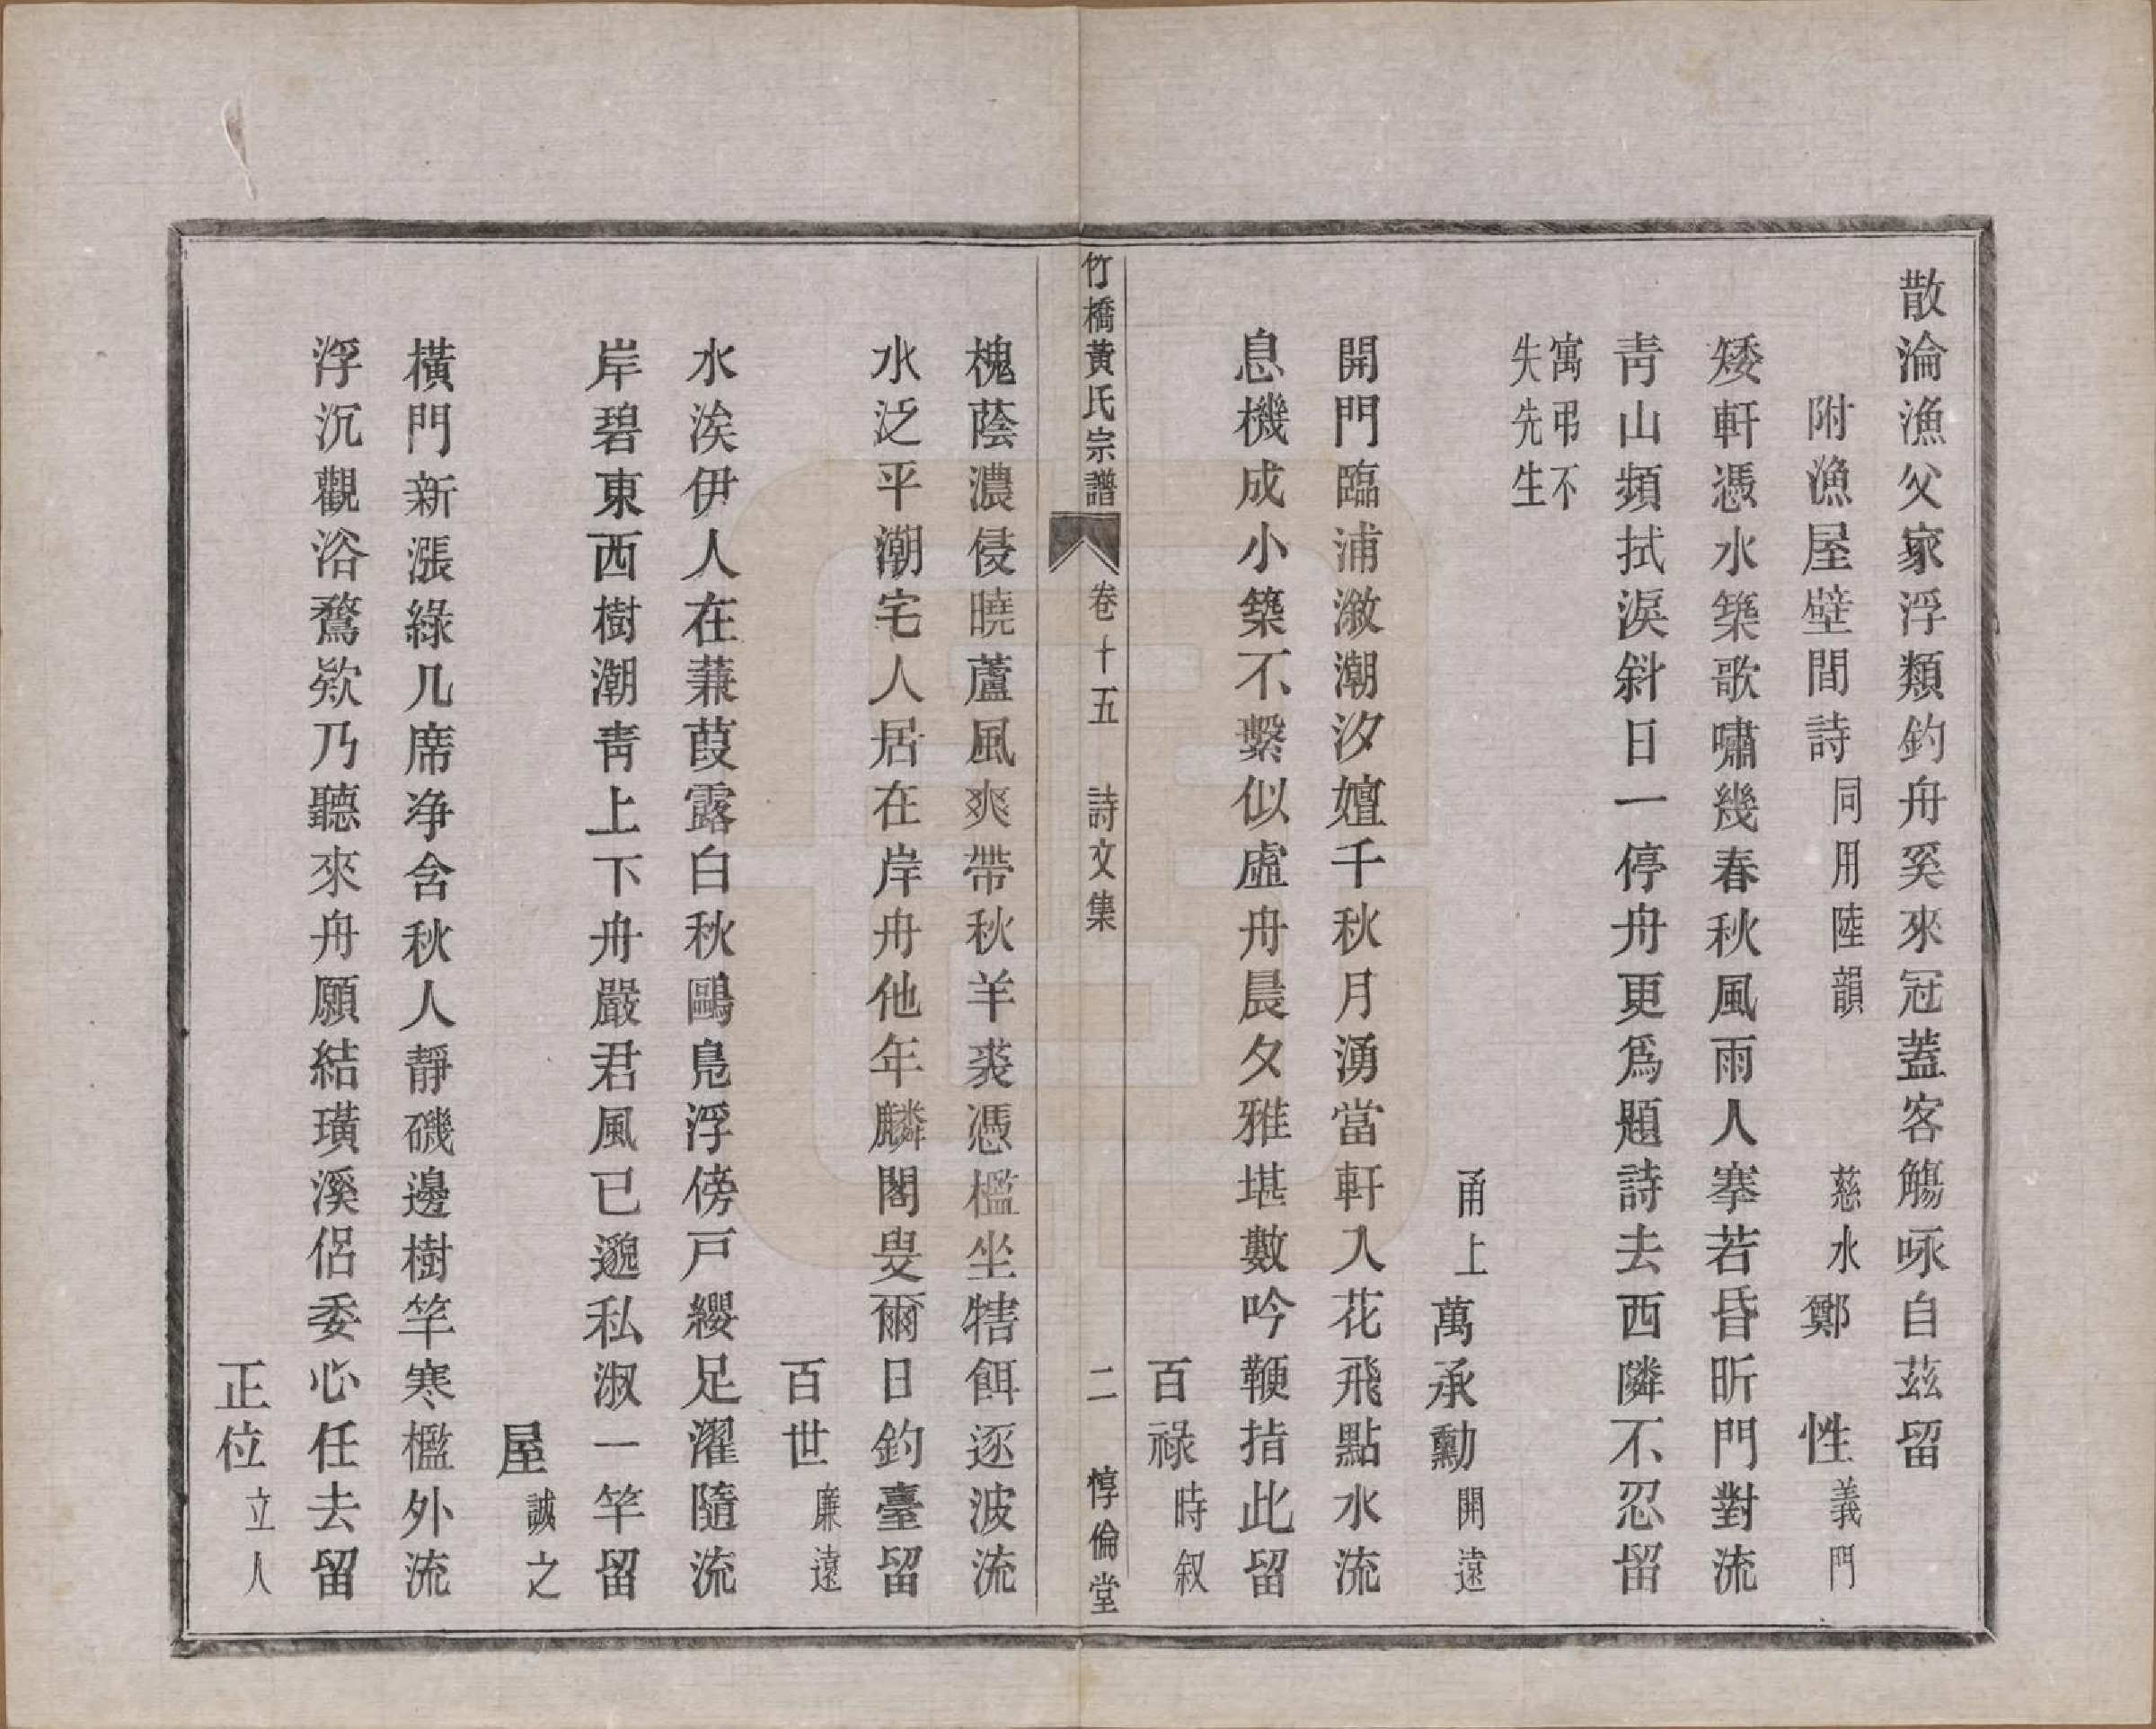 散淪漁父家浮類釣舟奚來冠蓋客觴咏自茲留
附漁屋壁間詩同用陸韻　慈水鄭　性義門
矮軒憑水築歌嘯幾春秋風雨人搴若昏昕門對流
靑山頻拭淚斜日一停舟更爲題詩去西隣不忍留
寓弔不
失先生
甬上萬承勳開遠
開門臨浦漵潮汐嬗千秋月湧當軒入花飛點水流
息機成小築不繫似虛舟晨夕雅堪數吟鞭指此留
百祿時叙
竹橋黃氏宗譜　卷十五　詩文集　二　惇倫堂
槐蔭濃侵曉蘆風爽帶秋羊裘憑檻坐犗餌逐波流
水泛平潮宅人居在岸舟他年麟閣叟爾日釣臺留
百世廉遠
水涘伊人在蒹葭露白秋鷗鳧浮傍戶纓足濯隨流
岸碧東西樹潮靑上下舟嚴君風已邈私淑一竿留
屋誠之
橫門新漲綠几席净含秋人靜磯邊樹竿寒檻外流
浮沉觀浴鶩欵乃聽來舟願結璜溪侶委心任去留
正位立人